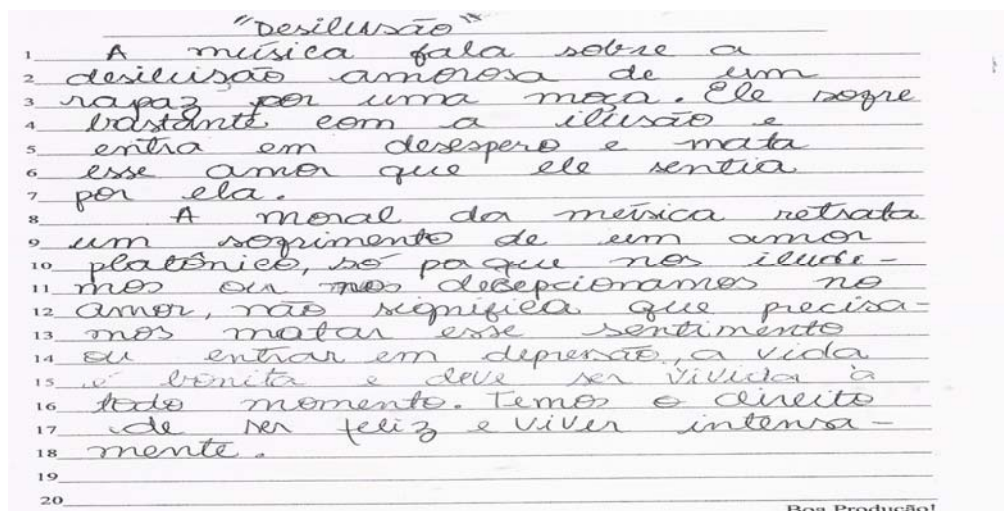 "Desilusão"
1 A música fala sobre a
2 desilusão amorosa de um
3 rapaz por uma moça. Ele sofre
4 bastante com a ilusão e
5 entra em desespero e mata
6 esse amor que ele sentia
7 por ela.
8 A moral da música retrata
9 um sofrimento de um amor
10 platônico, só paque nos iludi-
11 mos ou nos decepcionamos no
12 amor, não significa que precisa-
13 mos matar esse sentimento
14 ou entrar em depressão, a vida
15 é bonita e deve ser vivida à
16 todo momento. Temos o direito
17 de ser feliz e viver intensa-
18 mente.
19
20
Boa Produção!